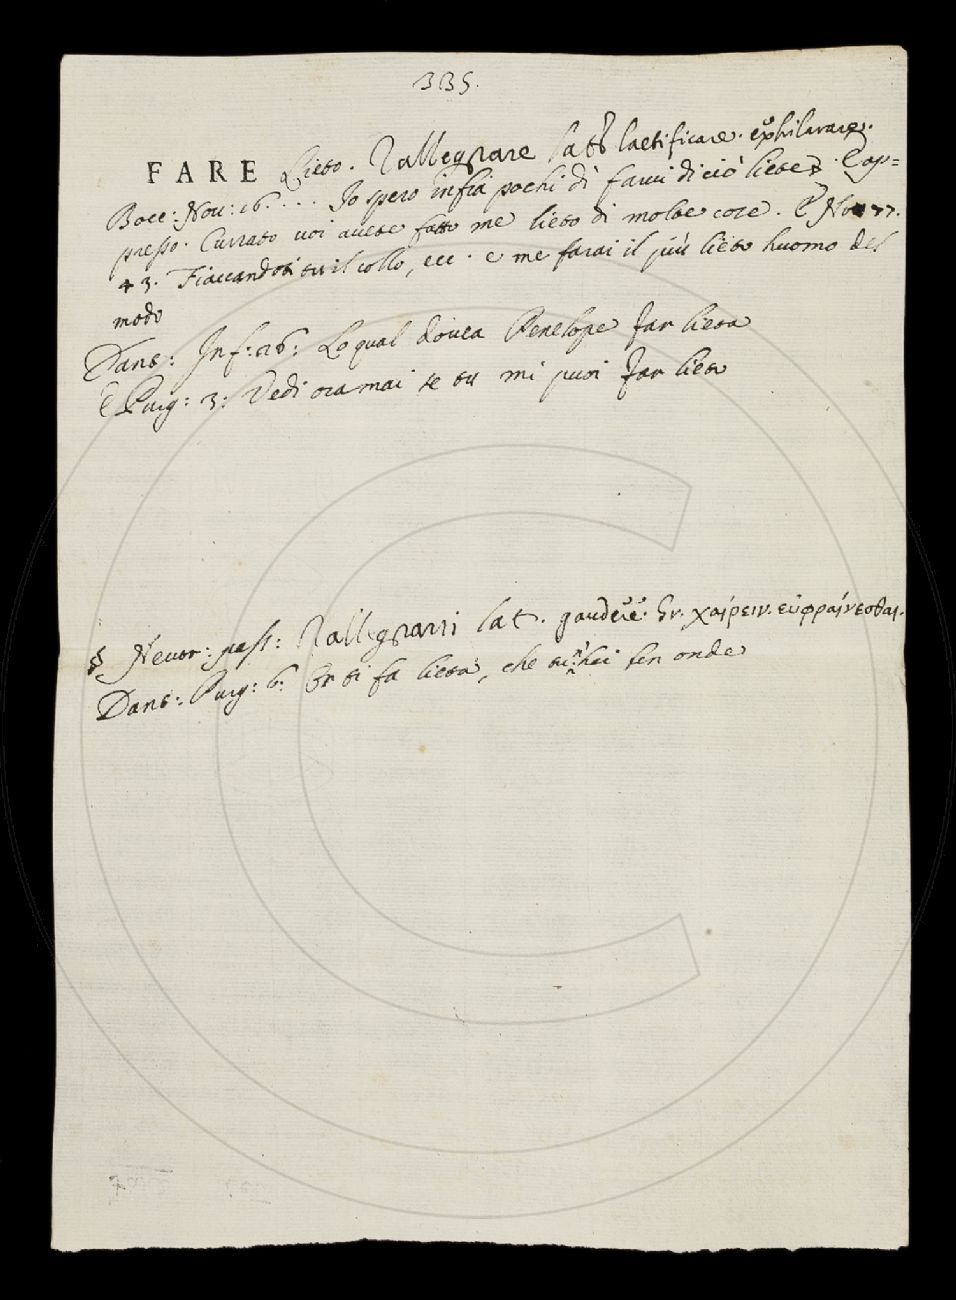 335.
FARE Lieto. Rallegrare lat. laetificare. exhilarare.
Bocc: Nov: 16. ... Io spero infra pochi dì farvi di ciò lieto. E ap=
presso. Currato voi avete fatto me lieto di molte cose. E Nov 77.
43. Fiaccandoti tu il collo, ecc. e me farai il più lieto huomo del
modo
Dant: Inf: 26: Lo qual dovea Penelope far lieta
E Purg: 3: Vedi oramai se tu mi puoi far lieto
§ Neutr: pass: Rallegrarsi lat. gaudere. Gr. χαίρειν. εὐφραίνεσθαι.
Dant: Purg: 6: Or ti fa lieta, che tu n'hai ben onde